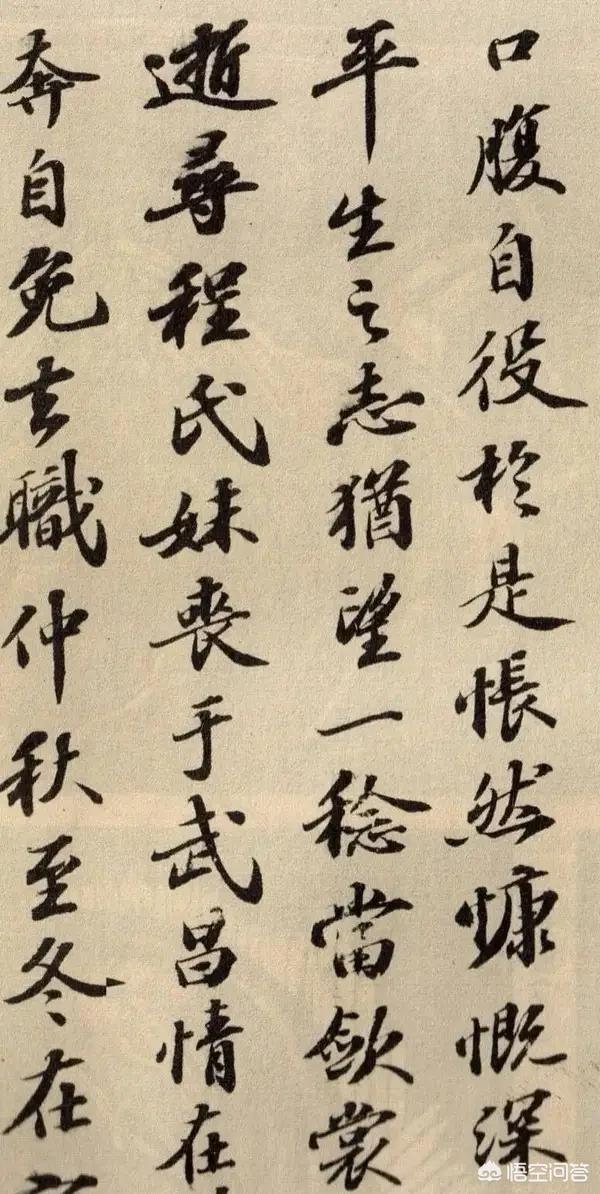 口腹自役於是悵然慷慨深
平生之志猶望一稔當斂裳
逝尋程氏妹喪于武昌情在
奔自免去職仲秋至冬在
悟空问答